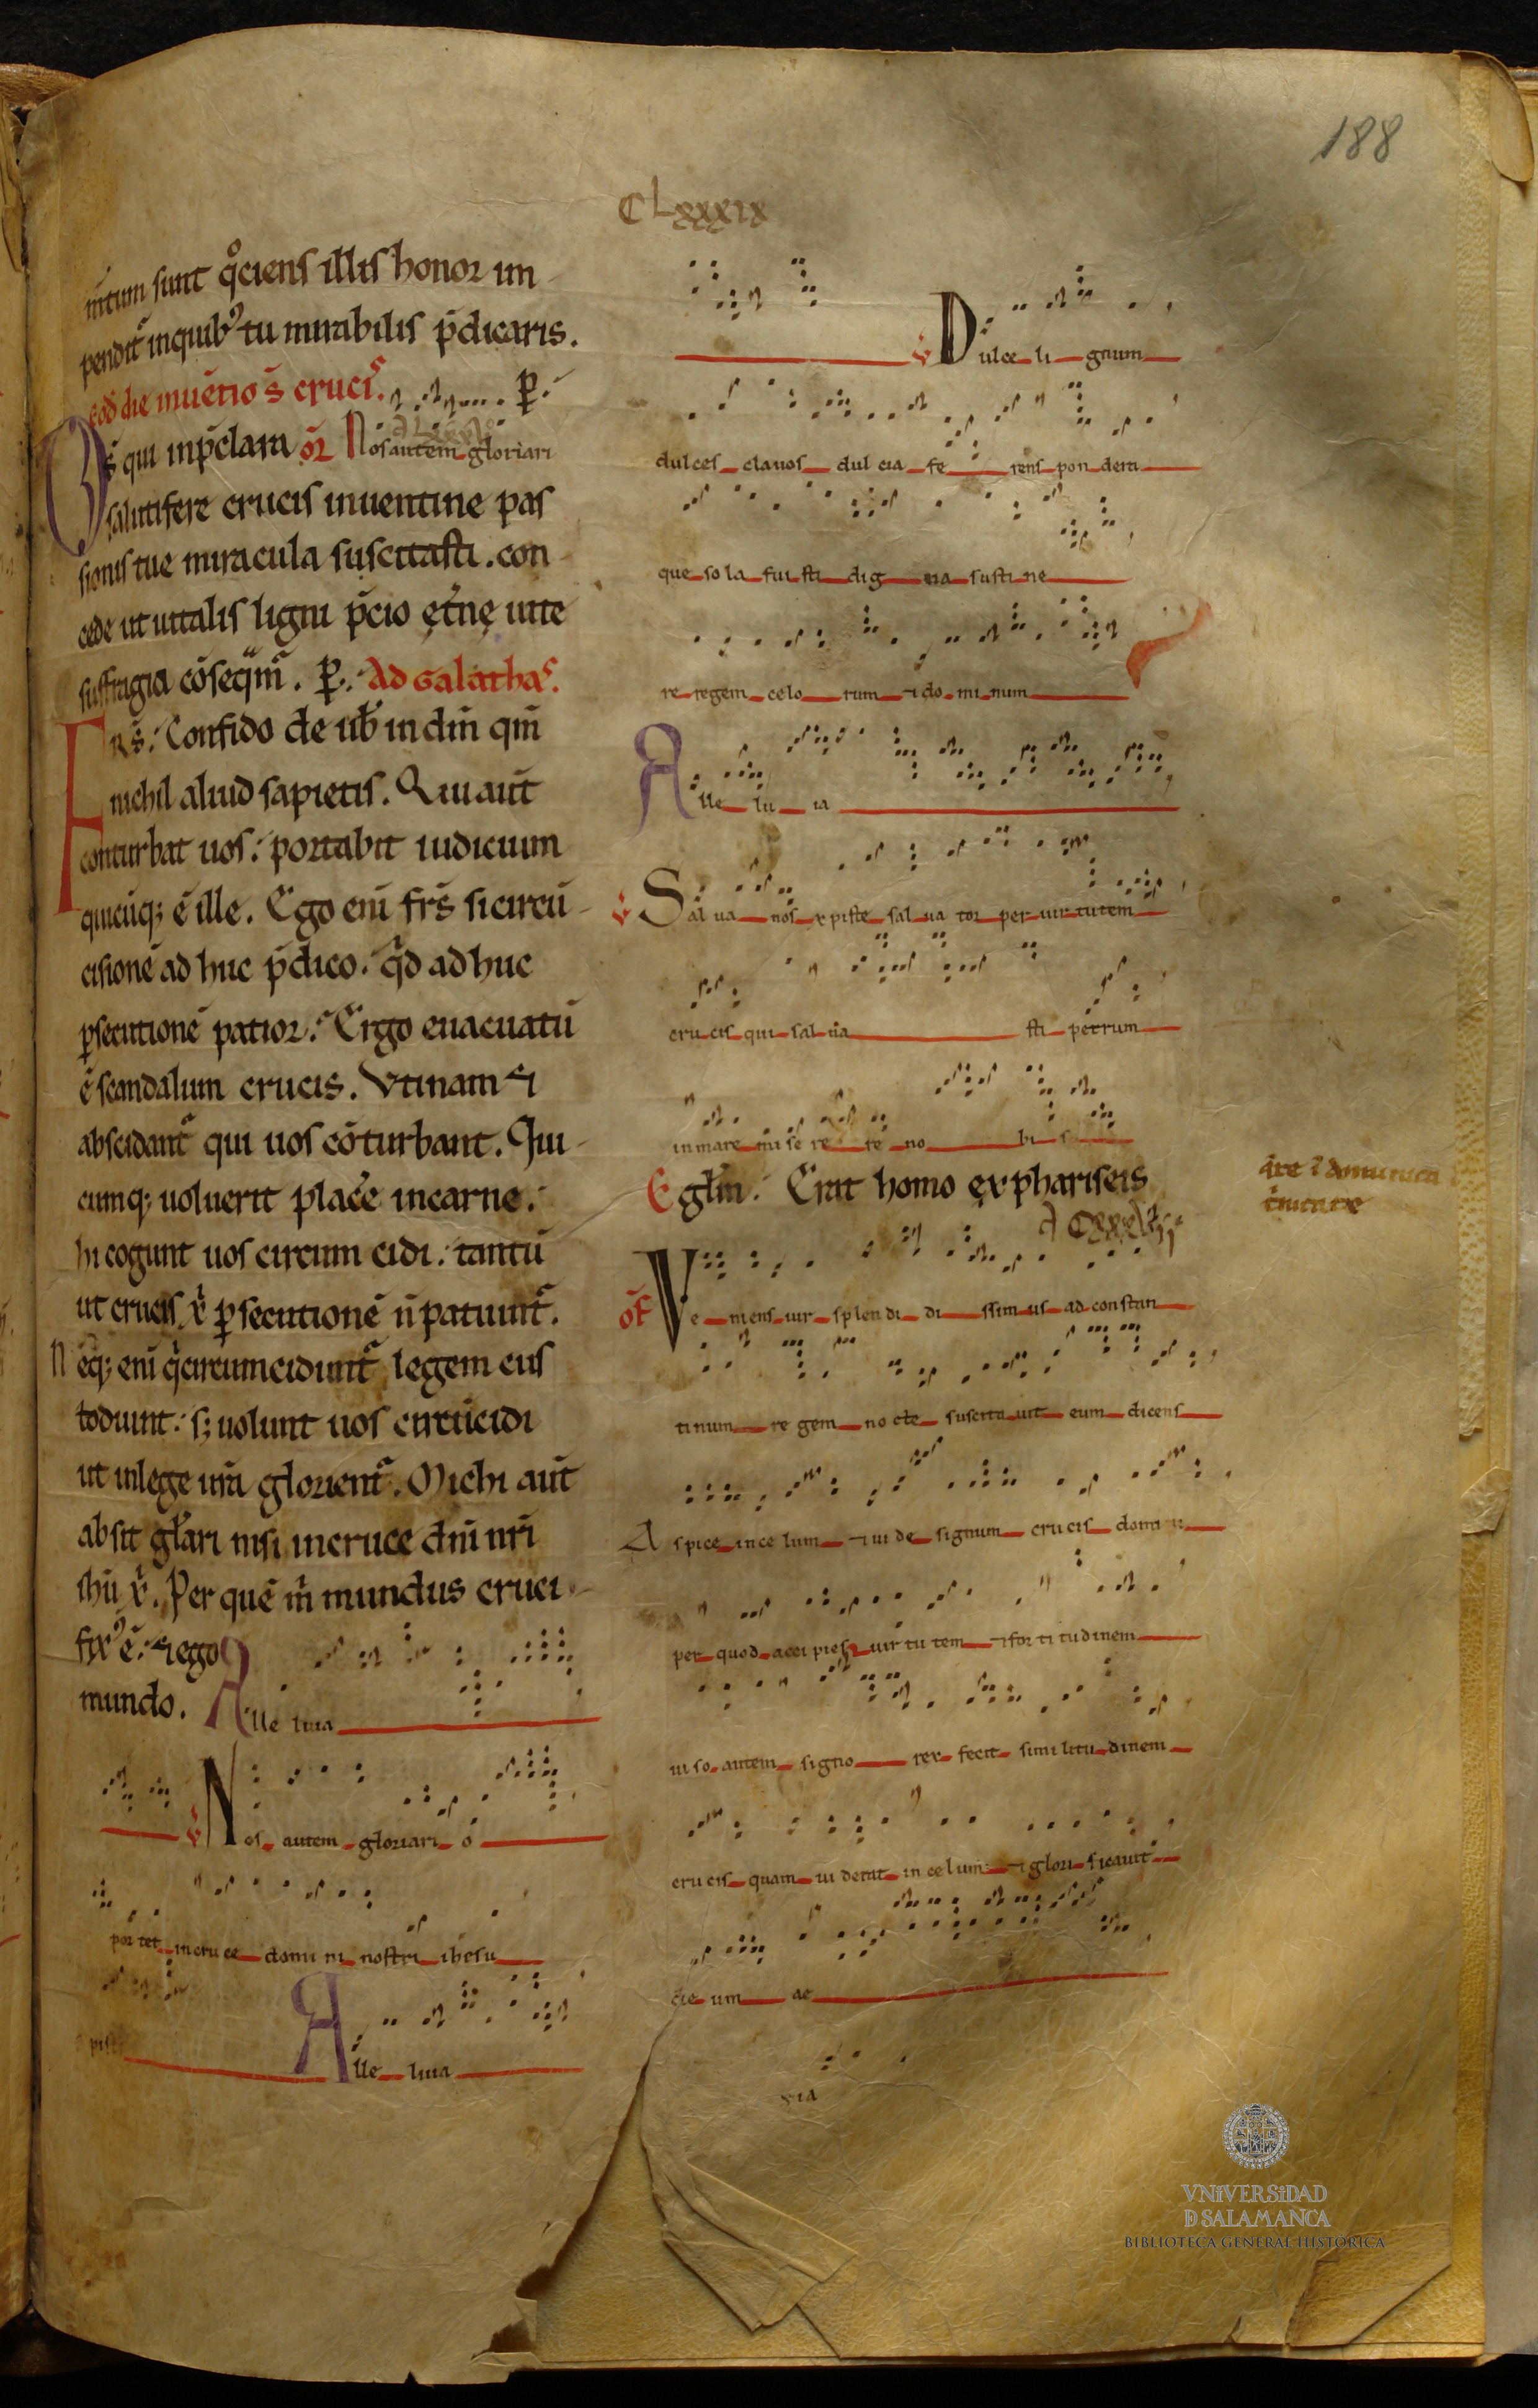 188
CLxxxix
mtum sunt qͦciens illis honor im
pendit᷑ inquibꝰ tu mirabilis p̄dicaris.
eod̄ die inuētio s̄ crucis. ꝑ.
Ds̄ qui inp̄clara or̄ Nos autem gloriari
salutifere crucis inuentine pas
sionis tue miracula suscitasti. con
cede ut uitalis ligni p̄cio ęt̄nę uite
suffragia cōseq̄m᷑. ꝑ. Ad Galathas.
Frs̄. Confido de uob̄ in dn̄i qm̄
nichil aliud sapietis. Qui aut̄
conturbat uos: portabit iudicium
quicūq; ē ille. Ego eni frs̄ si circū
cisionē ad huc p̄dico. q̄d ad huc
ꝑsecutionē patior. Ergo euacuatū
ē scandalum crucis. Vtinam ⁊
abscidant᷑ qui uos cōturbant. Qui
cumq; uoluerit place᷑ incarne.
hi cogunt uos circum cidi. tantū
ut crucis xp̄i ꝑsecutionē n̄ patiunt᷑.
Neq; eni q̄ circumcidunt᷑ legem cus
todiunt. s; uolunt uos circūcidi
ut inlege ur̄a glorient᷑. Michi aut̄
absit gl̄ari nisi incruce dn̄i nr̄i
ihū xp̄i. Per quē m̄ mundus cruci
fixꝰ ē. ⁊ ego
mundo. Alle luia
℣ Nos autem gloriari o
por tet in cru ce domi ni nostri ihesu
pisti
Alle luia
℣ Dulce li gnum
dulces clauos dul cia fe rens pon dera
que so la fui sti dig na susti ne
re regem celo rum ⁊ do mi num
Alle lu ia
℣ Sal ua nos xpiste sal ua tor per uir tutem
cru cis qui sal ua sti petrum
in mare mi se re re no bi s
Eglm̄. Erat homo ex phariseis
q̄re ī dominica
trinitatis
of Ve niens uir splen di di ssim us ad constan
tinum re gem no cte suscita uit eum dicens
A spice in ce lum ⁊ ui de signum cru cis domi ni
per quod acci pies uir tu tem ⁊ for ti tudinem
ui so autem signo rex fecit simi litu dinem
cru cis quam ui derat in ce lum ⁊ glori ficauit
de um ae
uia
VNiVERSiDAD
D SALAMANCA
BIBLIOTECA GENERAL HISTÓRICA